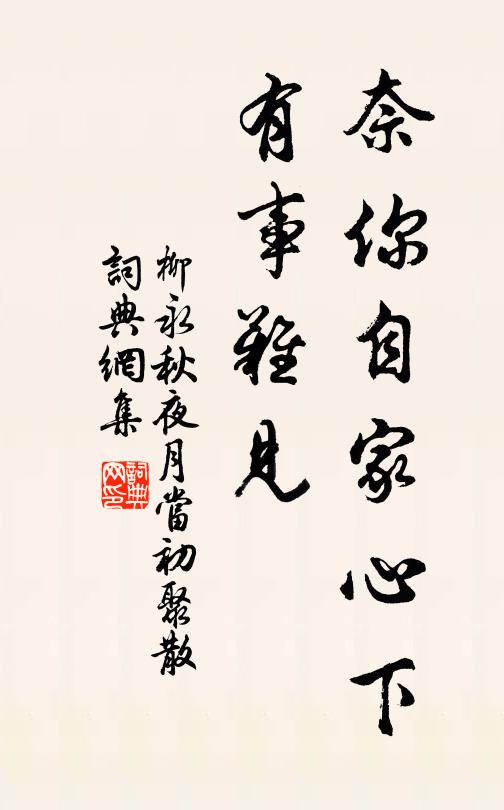 奈你自家心下
有事難見
柳永秋夜月當初聚散
詞典網集
詞典网印